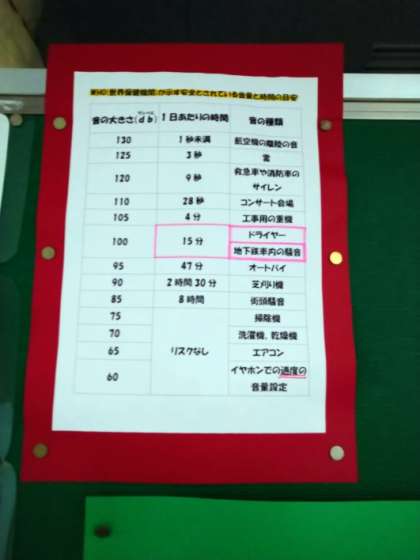 WHO(世界保健機関)が示す安全とされている音量と時間の目安
音の大きさ(ｄｂ) デシベル 1日あたりの時間 音の種類
130 1秒未満 航空機の離陸の音
125 3秒 雷
120 9秒 救急車や消防車の
サイレン
110 28秒 コンサート会場
105 4分 工事用の重機
100 15分 ドライヤー
地下鉄車内の騒音
95 47分 オートバイ
90 2時間30分 芝刈り機
85 8時間 街頭騒音
75 掃除機
70 洗濯機、乾燥機
65 リスクなし エアコン
60 イヤホンでの適度の
音量設定